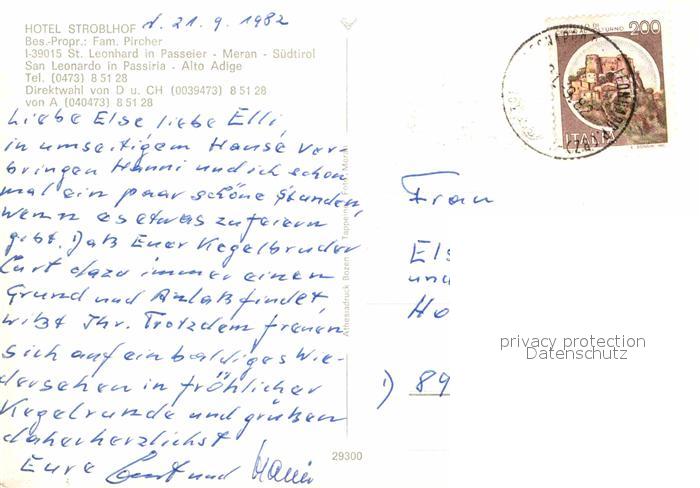 HOTEL STROBLHOF d. 21. 9. 1982
Bes.-Propr.: Fam. Pircher
I-39015 St. Leonhard in Passeier - Meran - Südtirol
San Leonardo in Passiria - Alto Adige
Tel. (0473) 8 51 28
Direktwahl von D u. CH (0039473) 8 51 28
von A (040473) 8 51 28
Liebe Else, liebe Elli,
in umseitigem Hause ver-
bringen Hanni und ich schon
mal ein paar schöne Stunden,
wenn es etwas zu feiern
gibt. Daß Euer Kegelbruder
Curt dazu immer einen
Grund und Anlaß findet,
wißt Ihr. Trotzdem freuen
sich auf ein baldiges Wie-
dersehen in fröhlicher
Kegelrunde und grüßen
daher herzlichst
Eure Curt und Hanni
Athesiadruck Bozen
29300
200
ITALIA
Frau
Els
und
Ho
privacy protection
Datenschutz
I) 89